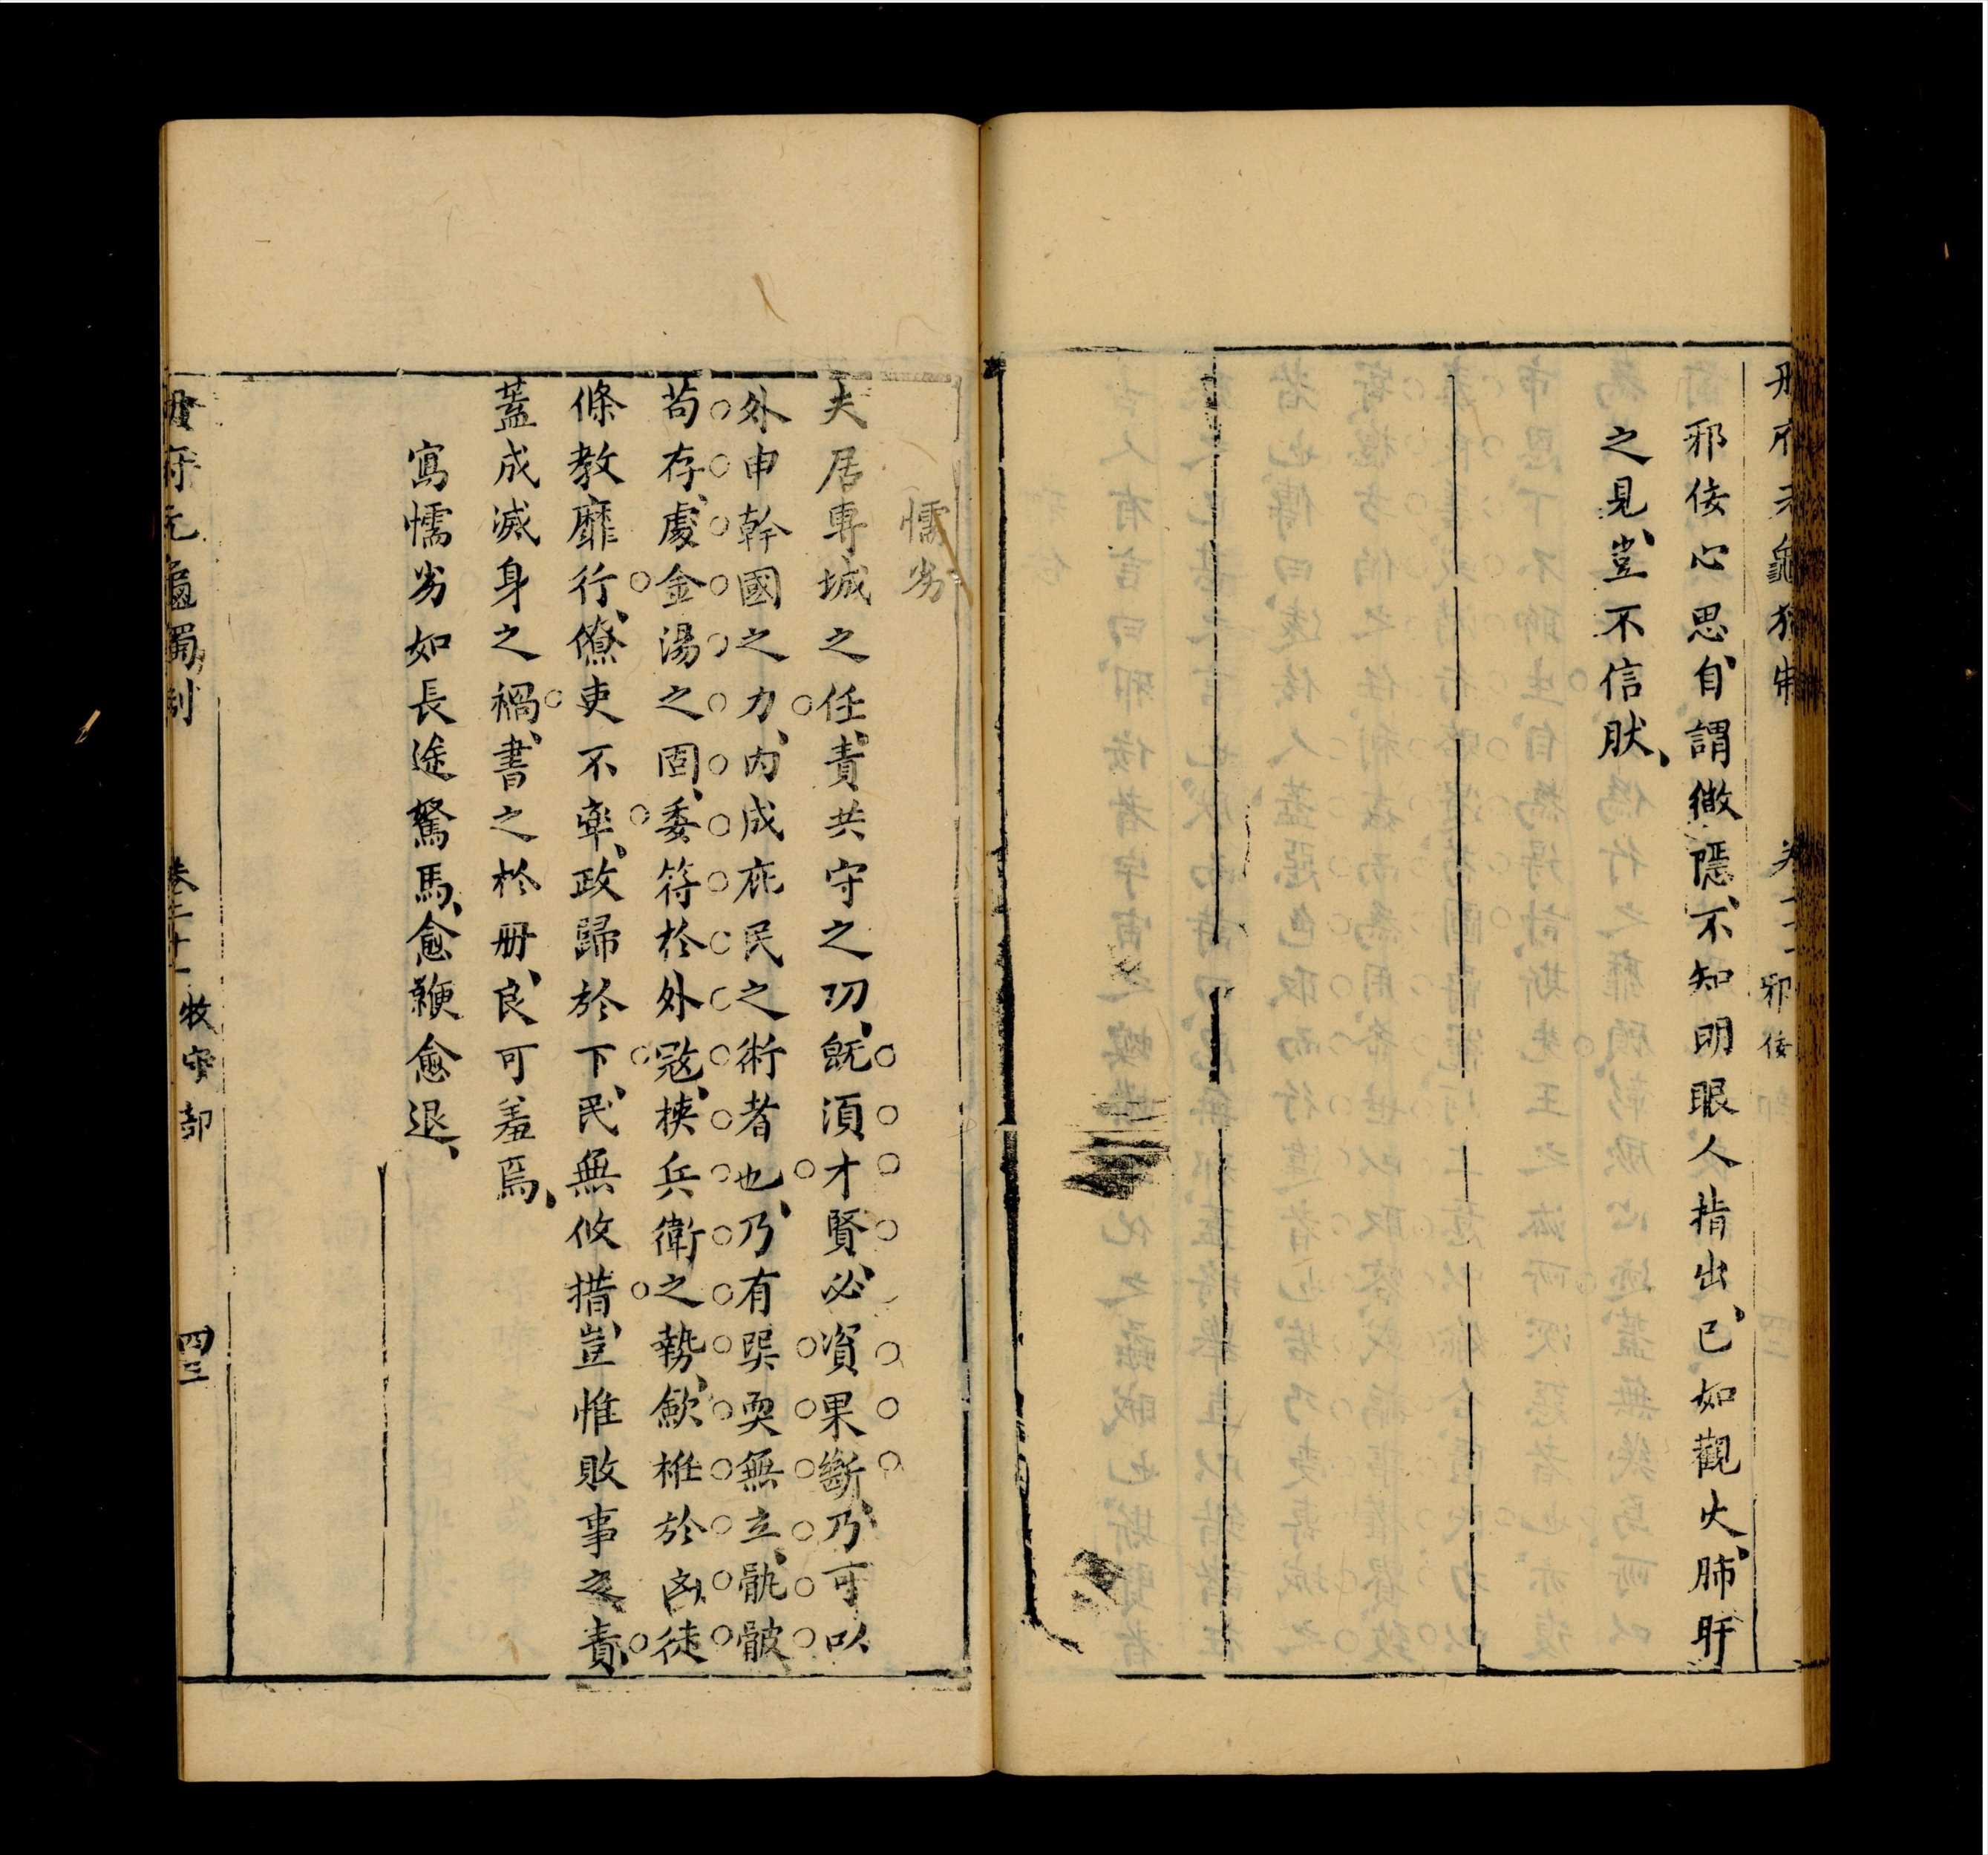 册府元龜獨制 卷二十一 邪佞
邪佞心思、自謂微隱、不知明眼人指出、已如觀火、肺肝
之見、豈不信肰、
懦劣
夫居專城之任、責共守之功、旣須才賢、必資果斷、乃可以
外申幹國之力、內成庇民之術者也、乃有巽耎無立、骫骳
苟存、處金湯之固、委符於外宼、挾兵衛之勢、歛袵於凶徒
條教靡行、僚吏不牽、政歸於下、民無攸措、豈惟敗事之責、
蓋成滅身之禍、書之於册、良可羞焉、
寫懦劣如長途駑馬、愈鞭愈退、
册府元龜獨制 卷二十一 牧守部 四三